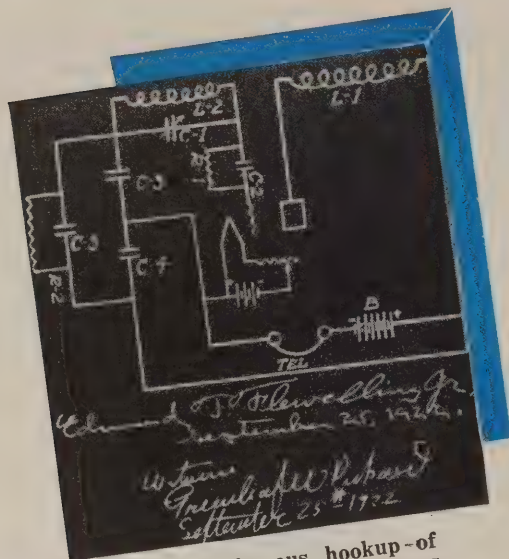 L-2
L-1
C-1
R-1
C-2
C-3
C-3
C-4
R-2
B
+
TEL
Edmund T. Flewelling Jr.
September 25, 1922.
Witness
Greenleaf W Pickard
September 25th 1922
hookup-of